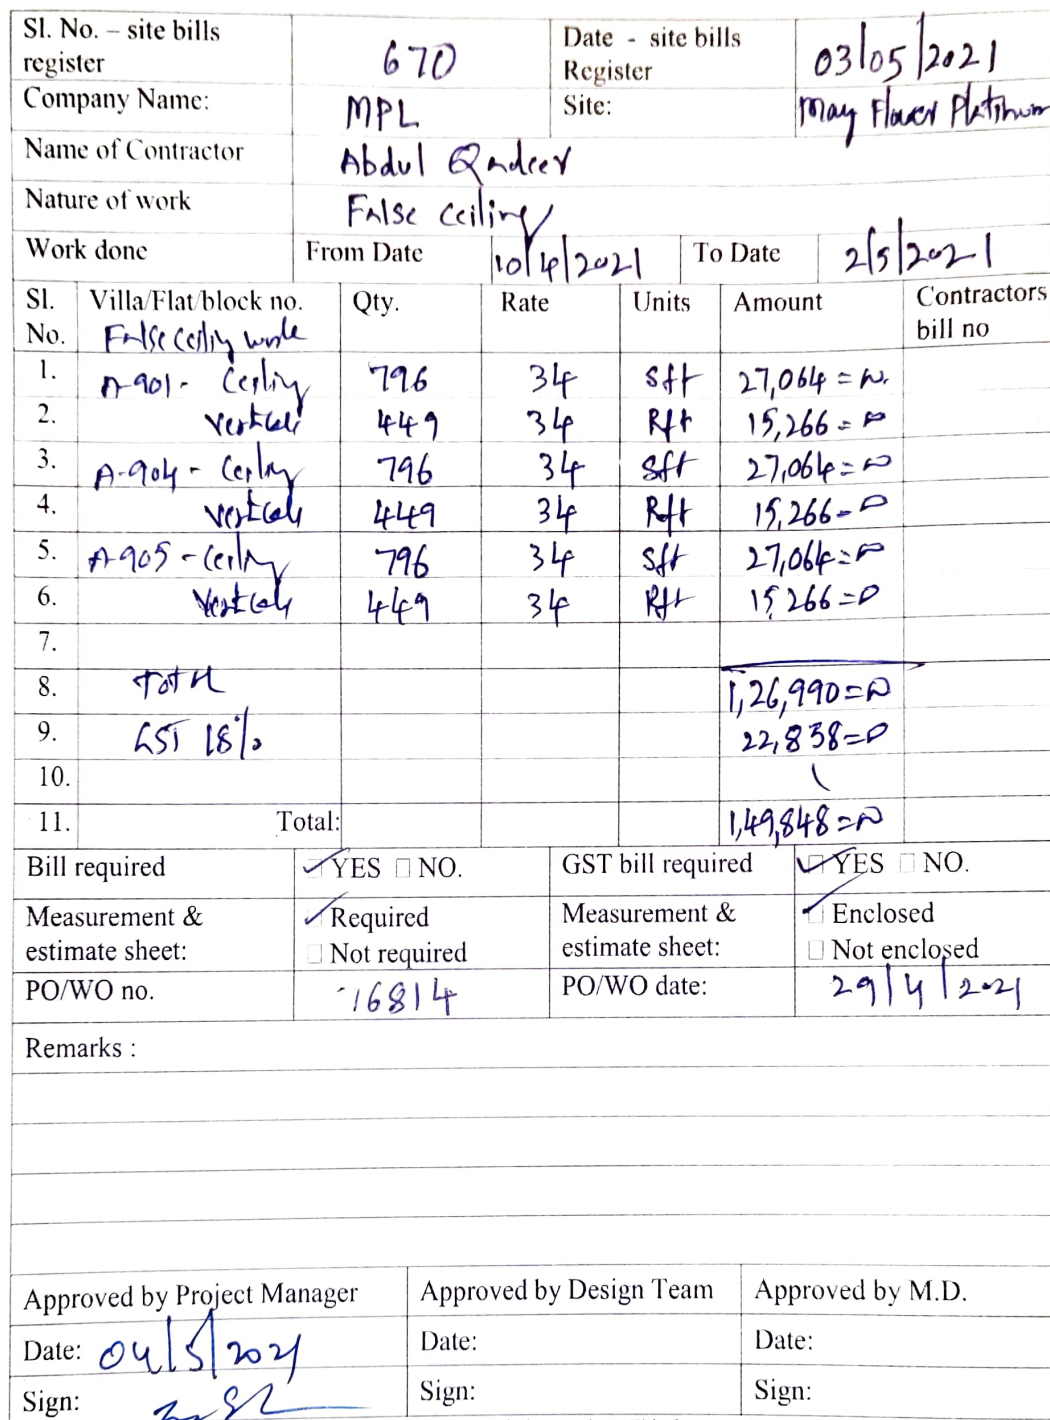 Sl. No. – site bills register 670 Date - site bills Register 03/05/2021
Company Name: MPL Site: May Flower Platinum
Name of Contractor Abdul Qadeer
Nature of work False ceiling
Work done From Date 10/4/2021 To Date 2/5/2021
Sl. No. Villa/Flat/block no. Qty. Rate Units Amount Contractors bill no
False ceiling work
1. A-901- Ceiling 796 34 Sft 27,064=00
2. Verticals 449 34 Rft 15,266=00
3. A-904 - Ceiling 796 34 Sft 27,064=00
4. Verticals 449 34 Rft 15,266=00
5. A-905 - Ceiling 796 34 Sft 27,064=00
6. Verticals 449 34 Rft 15,266=00
7.
8. Total 1,26,990=00
9. GST 18% 22,858=00
10.
11. Total: 1,49,848=00
Bill required YES NO. GST bill required YES NO.
Measurement & estimate sheet: Required Not required Measurement & estimate sheet: Enclosed Not enclosed
PO/WO no. 16814 PO/WO date: 29/4/2021
Remarks :
Approved by Project Manager Approved by Design Team Approved by M.D.
Date: 04/5/2021 Date: Date:
Sign: Sign: Sign: